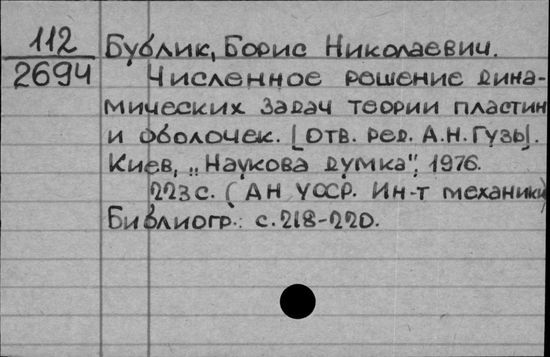 112
2694
Бублик, Борис Николаевич.
Численное решение дина-
мических задач теории пластин
и оболочек. [Отв. ред. А.Н. Гузь].
Киев, „Наукова думка", 1976.
223 с. (АН УССР. Ин-т механики)
Библиогр.: с. 218-220.